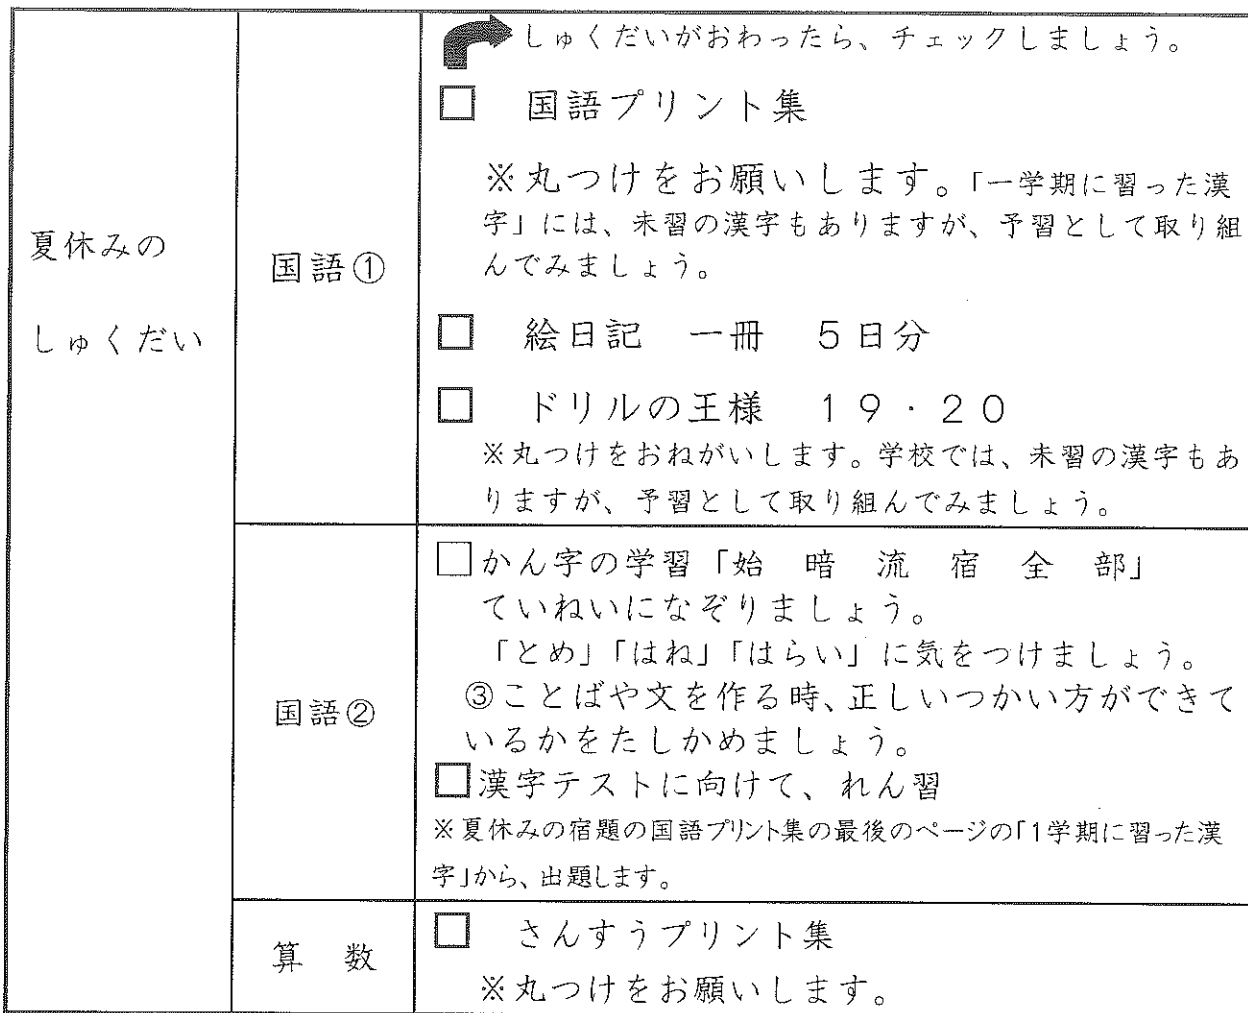 夏休みの
しゅくだい
国語①
しゅくだいがおわったら、チェックしましょう。
□ 国語プリント集
※丸つけをお願いします。「一学期に習った漢
字」には、未習の漢字もありますが、予習として取り組
んでみましょう。
□ 絵日記 一冊 5日分
□ ドリルの王様 19・20
※丸つけをおねがいします。学校では、未習の漢字もあ
りますが、予習として取り組んでみましょう。
国語②
□かん字の学習「始 暗 流 宿 全 部」
ていねいになぞりましょう。
「とめ」「はね」「はらい」に気をつけましょう。
③ことばや文を作る時、正しいつかい方ができて
いるかをたしかめましょう。
□漢字テストに向けて、れん習
※夏休みの宿題の国語プリント集の最後のページの「1学期に習った漢
字」から、出題します。
算 数
□ さんすうプリント集
※丸つけをお願いします。